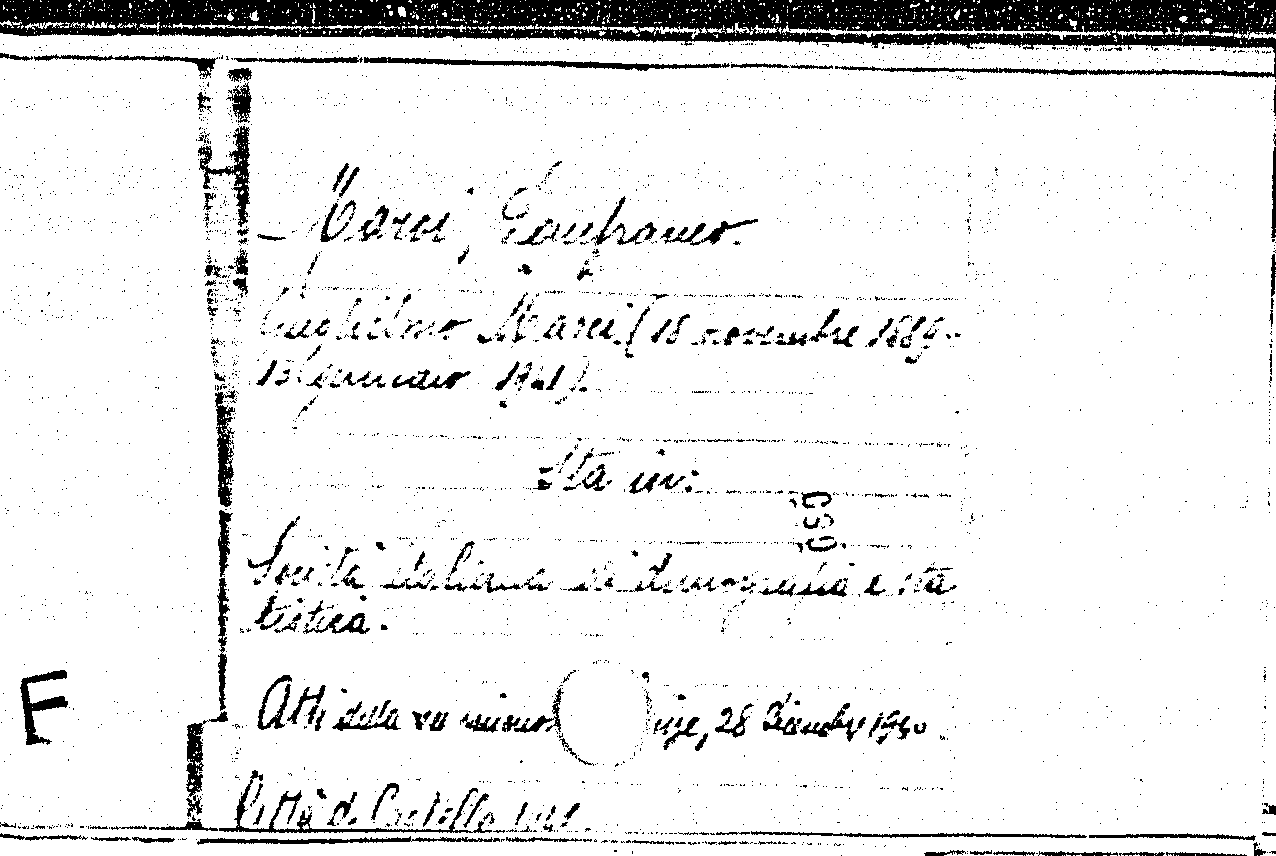 Maroi, Lanfranco.
Guglielmo Maroi (18 novembre 1889-
13 gennaio 1941).
Sta in:
Società italiana di demografia e sta
tistica.
Atti della riunione, 28 dicembre 1940.
Città di Castello 1941.
F